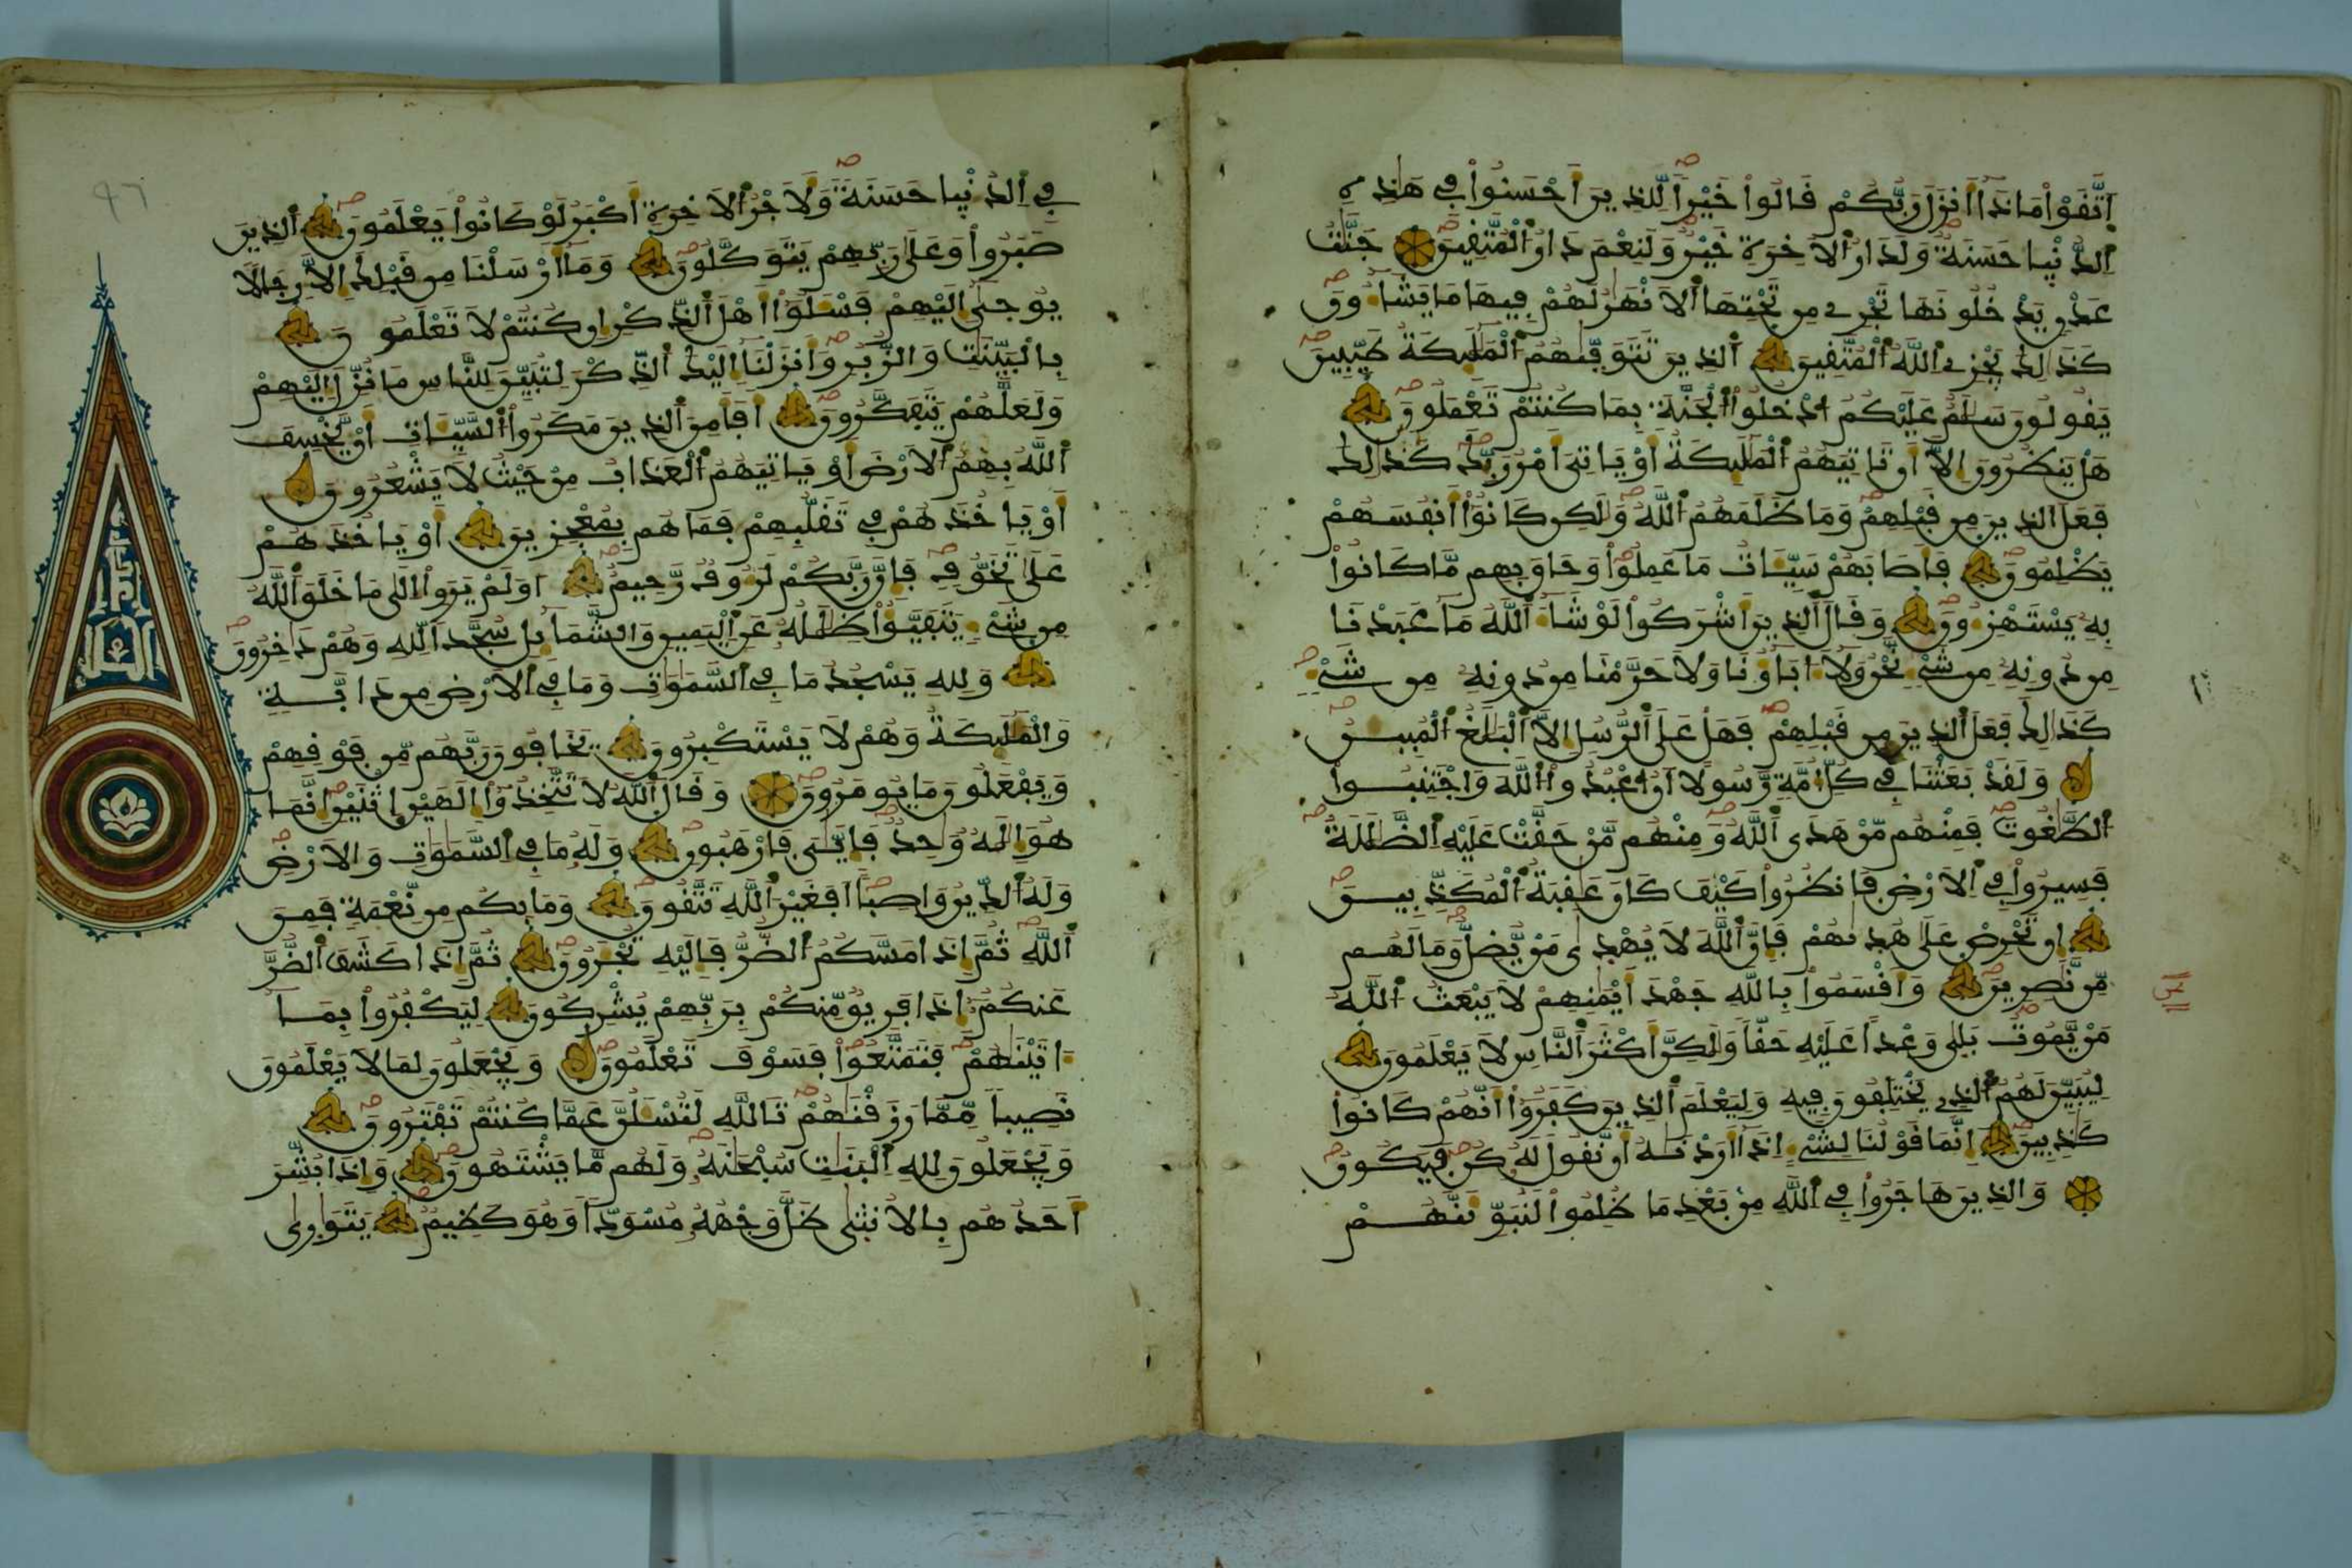 اِتَّقَوْا مَاذَا أَنزَلَ رَبُّكُمْ قَالُواْ خَيْراً لِّلذِينَ أَحْسَنُواْ فِي هَٰذِهِ
اِلدُّنْيا حَسَنَةٌ وَلَدَارُ اُلَاخِرَةِ خَيْرٌ وَلَنِعْمَ دَارُ اُلْمُتَّقِينَ جَنَّٰتُ
عَدْنٍ يَدْخُلُونَهَا تَجْرِے مِن تَحْتِهَا اَلَانْهَٰرُ لَهُمْ فِيهَا مَا يَشَآءُونَ
كَذَٰلِكَ يَجْزِے اِللَّهُ اُلْمُتَّقِينَ اَلذِينَ تَتَوَفّيٰهُمُ اُلْمَلَٰٓئِكَةُ طَيِّبِينَ
يَقُولُونَ سَلَٰمٌ عَلَيْكُمُ اُدْخُلُواْ اُلْجَنَّةَ بِمَا كُنتُمْ تَعْمَلُونَ
هَلْ يَنظُرُونَ إِلَّا أَن تَاتِيَهُمُ اُلْمَلَٰٓئِكَةُ أَوْ يَاتِيَ أَمْرُ رَبِّكَ كَذَٰلِكَ
فَعَلَ اَلذِينَ مِن قَبْلِهِمْ وَمَا ظَلَمَهُمُ اُللَّهُ وَلَٰكِن كَانُوا أَنفُسَهُمْ
يَظْلِمُونَ فَأَصَابَهُمْ سَيِّئَاتُ مَا عَمِلُواْ وَحَاقَ بِهِم مَّا كَانُواْ
بِهِ يَسْتَهْزِءُونَ وَقَالَ اَلذِينَ أَشْرَكُواْ لَوْ شَآءَ اَللَّهُ مَا عَبَدْنَا
مِن دُونِهِ مِن شَيْءٍ نَّحْنُ وَلَا ءَابَآؤُنَا وَلَا حَرَّمْنَا مِن دُونِهِ مِن شَيْءٍ
كَذَٰلِكَ فَعَلَ اَلذِينَ مِن قَبْلِهِمْ فَهَلْ عَلَى اَلرُّسُلِ إِلَّا اَلْبَلَٰغُ اُلْمُبِينُ
وَلَقَدْ بَعَثْنَا فِي كُلِّ أُمَّةٍ رَّسُولًا أَنُ اُعْبُدُواْ اُللَّهَ وَاجْتَنِبُواْ
اُلطَّٰغُوتَ فَمِنْهُم مَّنْ هَدَى اَللَّهُ وَمِنْهُم مَّنْ حَقَّتْ عَلَيْهِ اِلضَّلَٰلَةُ
فَسِيرُواْ فِي اِلَارْضِ فَانظُرُواْ كَيْفَ كَانَ عَٰقِبَةُ اُلْمُكَذِّبِينَ
إِن تَحْرِصْ عَلَىٰ هُدٰىهُمْ فَإِنَّ اَللَّهَ لَا يُهْدَىٰ مَنْ يُّضِلُّ وَمَا لَهُم
مِّن نَّٰصِرِينَ وَأَقْسَمُواْ بِاللَّهِ جَهْدَ أَيْمَٰنِهِمْ لَا يَبْعَثُ اُللَّهُ
مَنْ يَّمُوتُ بَلٰى وَعْداً عَلَيْهِ حَقّاً وَلَٰكِنَّ أَكْثَرَ اَلنَّاسِ لَا يَعْلَمُونَ
لِيُبَيِّنَ لَهُمُ اُلذِے يَخْتَلِفُونَ فِيهِ وَلِيَعْلَمَ اَلذِينَ كَفَرُواْ أَنَّهُمْ كَانُواْ
كَٰذِبِينَ إِنَّمَا قَوْلُنَا لِشَيْءٍ اِذَا أَرَدْنَٰهُ أَن نَّقُولَ لَهُ كُن فَيَكُونُ
وَالذِينَ هَاجَرُواْ فِي اِللَّهِ مِنْ بَعْدِ مَا ظُلِمُواْ لَنُبَوِّئَنَّهُمْ
فِي اِلدُّنْيا حَسَنَةً وَلَأَجْرُ اُلَاخِرَةِ أَكْبَرُ لَوْ كَانُواْ يَعْلَمُونَ اَلذِينَ
صَبَرُواْ وَعَلَىٰ رَبِّهِمْ يَتَوَكَّلُونَ وَمَا أَرْسَلْنَا مِن قَبْلِكَ إِلَّا رِجَالًا
يُوحَىٰ إِلَيْهِمْ فَسْـَٔلُواْ أَهْلَ اَلذِّكْرِ إِن كُنتُمْ لَا تَعْلَمُونَ
بِالْبَيِّنَٰتِ وَالزُّبُرِ وَأَنزَلْنَا إِلَيْكَ اَلذِّكْرَ لِتُبَيِّنَ لِلنَّاسِ مَا نُزِّلَ إِلَيْهِمْ
وَلَعَلَّهُمْ يَتَفَكَّرُونَ أَفَأَمِنَ اَلذِينَ مَكَرُواْ اُلسَّيِّئَاتِ أَنْ يَّخْسِفَ
اَللَّهُ بِهِمُ اُلَارْضَ أَوْ يَاتِيَهُمُ اُلْعَذَابُ مِنْ حَيْثُ لَا يَشْعُرُونَ
أَوْ يَاخُذَهُمْ فِي تَقَلُّبِهِمْ فَمَا هُم بِمُعْجِزِينَ أَوْ يَاخُذَهُمْ
عَلَىٰ تَخَوُّفٍ فَإِنَّ رَبَّكُمْ لَرَءُوفٌ رَّحِيمٌ اَوَلَمْ يَرَوِاْ اِلَىٰ مَا خَلَقَ اَللَّهُ
مِن شَيْءٍ يَتَفَيَّؤُاْ ظِلَٰلُهُ عَنِ اِلْيَمِينِ وَالشَّمَآئِلِ سُجَّداً لِّلهِ وَهُمْ دَٰخِرُونَ
وَلِلهِ يَسْجُدُ مَا فِي اِلسَّمَٰوَٰتِ وَمَا فِي اِلَارْضِ مِن دَآبَّةٍ
وَالْمَلَٰٓئِكَةُ وَهُمْ لَا يَسْتَكْبِرُونَ يَخَافُونَ رَبَّهُم مِّن فَوْقِهِمْ
وَيَفْعَلُونَ مَا يُومَرُونَ وَقَالَ اَللَّهُ لَا تَتَّخِذُواْ إِلَٰهَيْنِ اِثْنَيْنِ إِنَّمَا
هُوَ إِلَٰهٌ وَٰحِدٌ فَإِيَّٰيَ فَارْهَبُونِ وَلَهُ مَا فِي اِلسَّمَٰوَٰتِ وَالَارْضِ
وَلَهُ اُلدِّينُ وَاصِباً أَفَغَيْرَ اَللَّهِ تَتَّقُونَ وَمَا بِكُم مِّن نِّعْمَةٍ فَمِنَ
اَللَّهِ ثُمَّ إِذَا مَسَّكُمُ اُلضُّرُّ فَإِلَيْهِ تَجْـَٔرُونَ ثُمَّ إِذَا كَشَفَ اَلضُّرَّ
عَنكُمُ إِذَا فَرِيقٌ مِّنكُمْ بِرَبِّهِمْ يُشْرِكُونَ لِيَكْفُرُواْ بِمَا
ءَاتَيْنَٰهُمْ فَتَمَتَّعُواْ فَسَوْفَ تَعْلَمُونَ وَيَجْعَلُونَ لِمَا لَا يَعْلَمُونَ
نَصِيباً مِّمَّا رَزَقْنَٰهُمْ تَاللَّهِ لَتُسْـَٔلُنَّ عَمَّا كُنتُمْ تَفْتَرُونَ
وَيَجْعَلُونَ لِلهِ اِلْبَنَٰتِ سُبْحَٰنَهُ وَلَهُم مَّا يَشْتَهُونَ وَإِذَا بُشِّرَ
أَحَدُهُم بِالُانثَىٰ ظَلَّ وَجْهُهُ مُسْوَدّاً وَهُوَ كَظِيمٌ يَتَوَٰرَىٰ